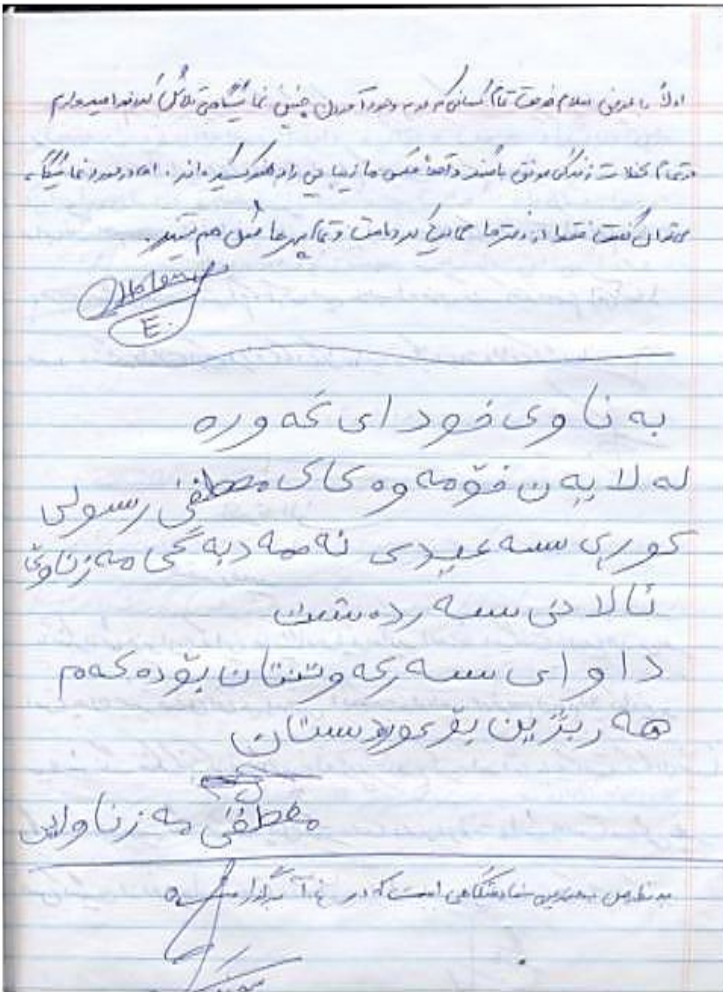 اولاً با عرض سلام خدمت تمام کسانی که در به وجود آمدن چنین نمایشگاهی تلاش کردند امیدوارم
در تمام لحظات زندگی موفق باشند و آنها عکس ها زیبا در راه هنر کشیده‌اند. اما در مورد نمایشگاه
می‌توان گفت فقط از دخترها حمایت کرده است و تمام پسرها
Hatami
E.
به ناوی خودای گه وره
له لایه ن خۆمه وه کاک مصطفی رسولی
کوری سه عیدی ئه حمه د به گی مه زناوێ
ئالانی سه رده شت
داوای سه رکه وتنتان بۆ ده که م
هه ر بژین بۆ کوردستان
مصطفی مه زناوایی
به نظر من بهترین نمایشگاهی است که در بانه برگزار